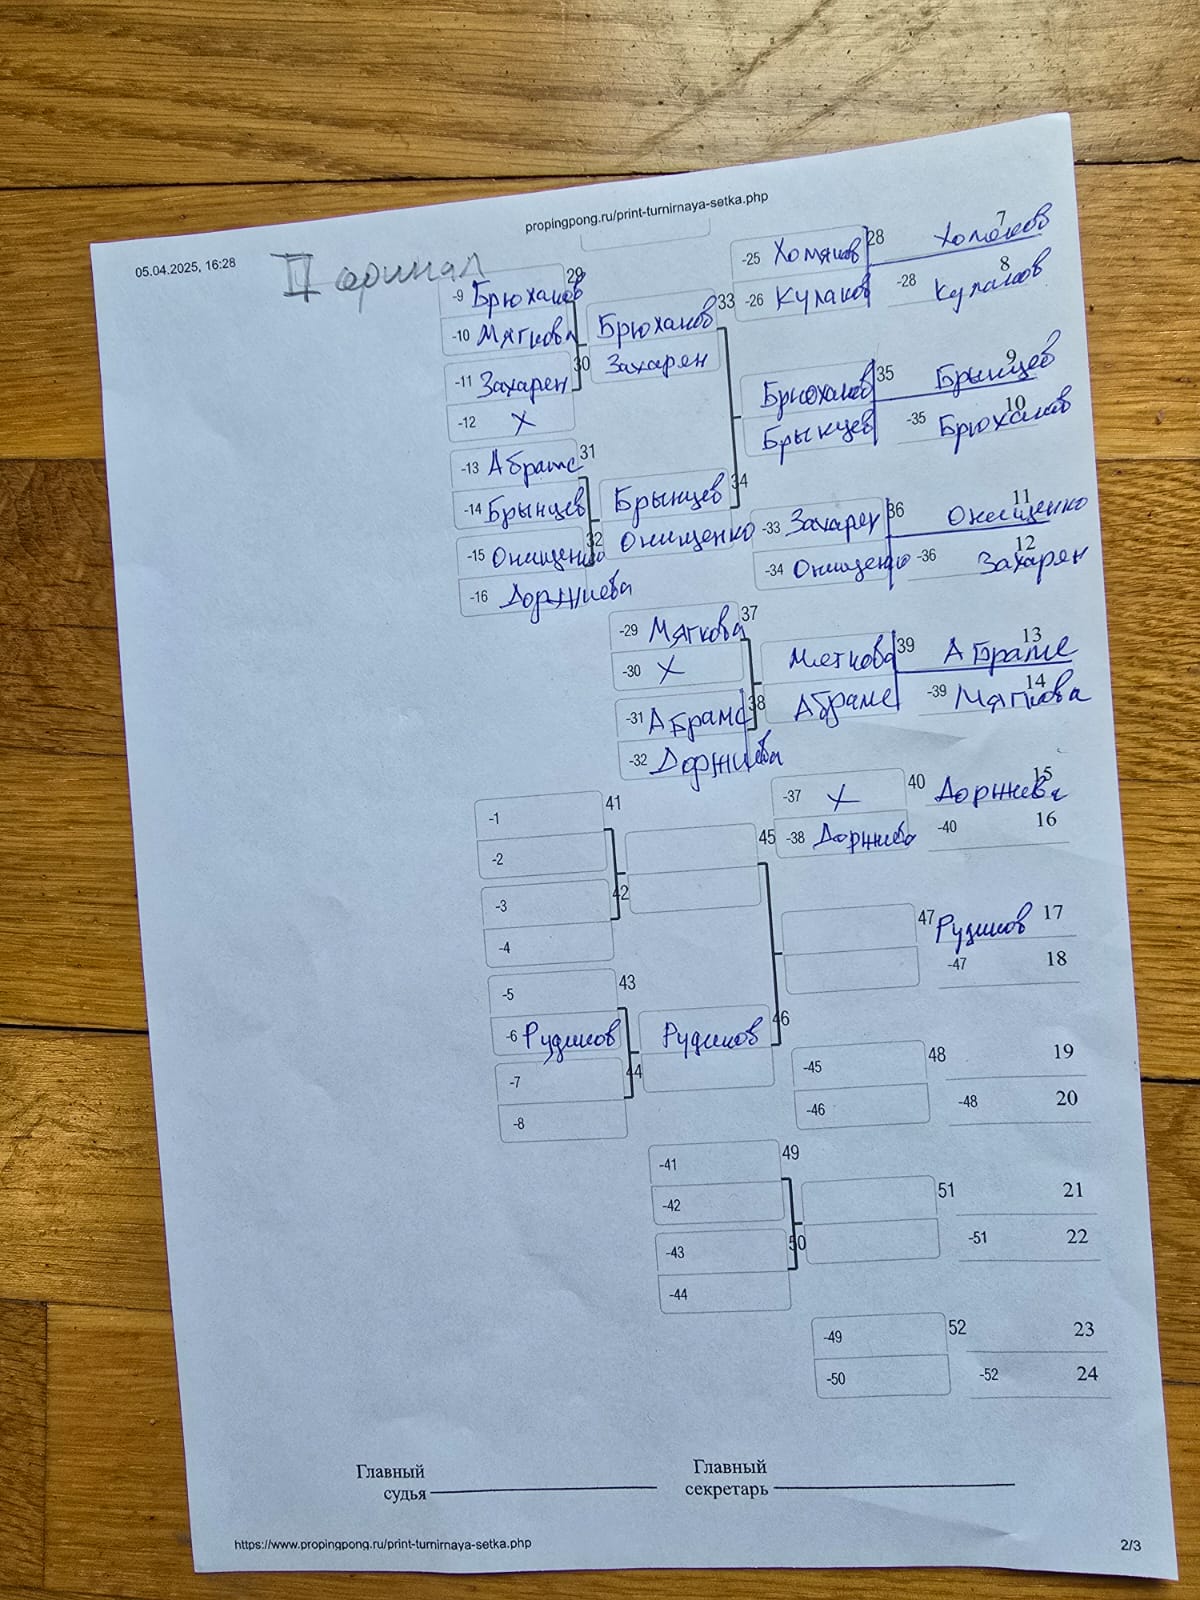 propingpong.ru/print-turnirnaya-setka.php
05.04.2025, 16:28
II финал
-9 Брюханов 29
-10 Мягкова
-11 Захарен 30
-12 X
-13 Абраме 31
-14 Брынцев
-15 Онищенко 32
-16 Доржиева
Брюханов 33
Захарен
Брынцев 34
Онищенко
-25 Хомяков 28 Хомяков 7
-26 Кулаков -28 Кулаков 8
Брюханов 35 Брынцев 9
Брынцев -35 Брюханов 10
-33 Захарен 36 Онищенко 11
-34 Онищенко -36 Захарен 12
-29 Мягкова 37
-30 X
-31 Абраме 38
-32 Доржиева
Мягкова 39 Абраме 13
Абраме -39 Мягкова 14
-37 X 40 Доржиева 15
-38 Доржиева -40 16
-1 41
-2
-3 42
-4
-5 43
-6 Рудиков
-7 44
-8
45
Рудиков 46
47 Рудиков 17
-47 18
-45 48 19
-46 -48 20
-41 49
-42
-43 50
-44
51 21
-51 22
-49 52 23
-50 -52 24
Главный судья
Главный секретарь
https://www.propingpong.ru/print-turnirnaya-setka.php
2/3